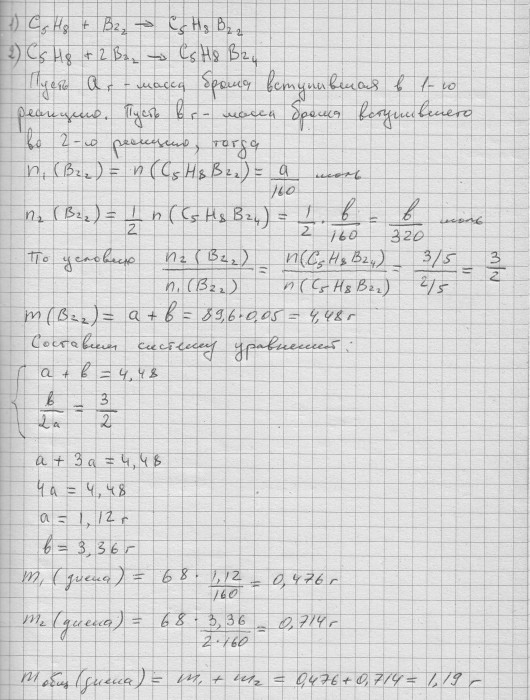 1) C₅H₈ + Br₂ → C₅H₈Br₂
2) C₅H₈ + 2Br₂ → C₅H₈Br₄
Пусть a г - масса брома вступившая в 1-ю
реакцию. Пусть в г - масса брома вступившего
во 2-ю реакцию, тогда
n₁(Br₂) = n(C₅H₈Br₂) = a/160 моль
n₂(Br₂) = 1/2 n(C₅H₈Br₄) = 1/2 · в/160 = в/320 моль
По условию n₂(Br₂)/n₁(Br₂) = n(C₅H₈Br₄)/n(C₅H₈Br₂) = (3/5)/(2/5) = 3/2
m(Br₂) = a + в = 89,6·0,05 = 4,48 г
Составим систему уравнений:
{ a + в = 4,48
в/2a = 3/2
a + 3a = 4,48
4a = 4,48
a = 1,12 г
в = 3,36 г
m₁(диена) = 68 · 1,12/160 = 0,476 г
m₂(диена) = 68 · 3,36/2·160 = 0,714 г
m общ(диена) = m₁ + m₂ = 0,476 + 0,714 = 1,19 г